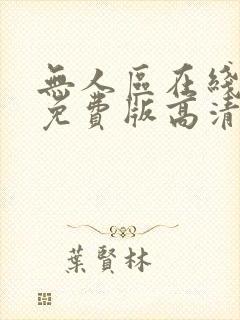 無人區在綫
免費版高清
葉賢林